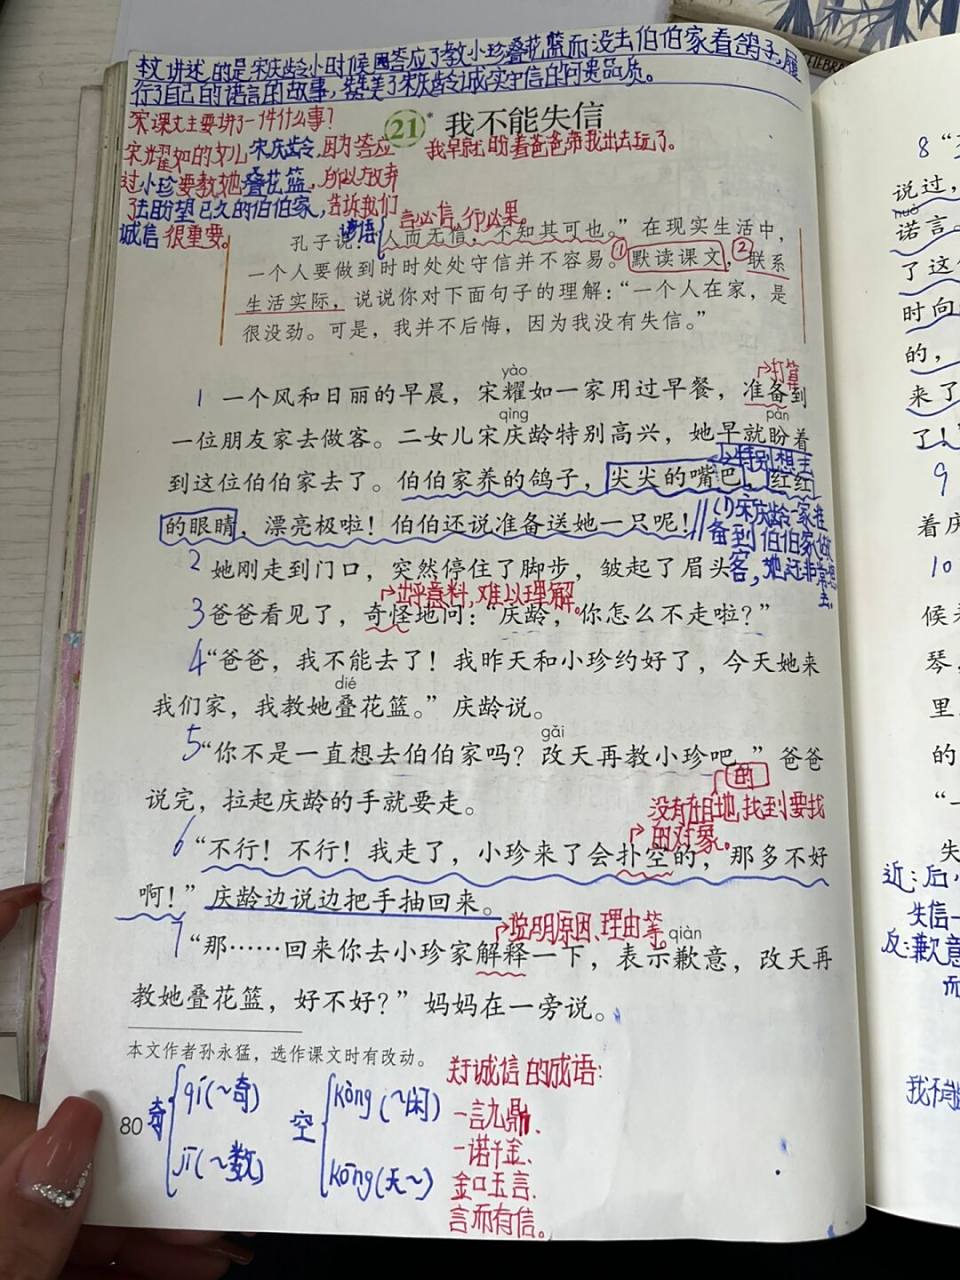 本文讲述的是宋庆龄小时候因答应了教小珍叠花篮而没去伯伯家看鸽子,履
行了自己的诺言的故事,赞美了宋庆龄诚实守信的可贵品质。
课文主要讲了一件什么事?
宋耀如的女儿宋庆龄,因为答应
过小珍要教她叠花篮,所以放弃
了去盼望已久的伯伯家,告诉我们
诚信很重要。
21* 我不能失信
我早就盼着爸爸带我出去玩了。
言必信,行必果。
孔子说:“人而无信,不知其可也。”在现实生活中,
一个人要做到时时处处守信并不容易。①默读课文,②联系
生活实际,说说你对下面句子的理解:“一个人在家,是
很没劲。可是,我并不后悔,因为我没有失信。”
打算
yào
1 一个风和日丽的早晨,宋耀如一家用过早餐,准备到
qìng pàn
一位朋友家去做客。二女儿宋庆龄特别高兴,她早就盼着
特别想去
到这位伯伯家去了。伯伯家养的鸽子,尖尖的嘴巴,红红
的眼睛,漂亮极啦!伯伯还说准备送她一只呢!
(1)宋庆龄一家准
备到伯伯家做
客,她还非常想
去
2 她刚走到门口,突然停住了脚步,皱起了眉头
出乎意料,难以理解。
3 爸爸看见了,奇怪地问:“庆龄,你怎么不走啦?”
4 “爸爸,我不能去了!我昨天和小珍约好了,今天她来
dié
我们家,我教她叠花篮。”庆龄说。
gǎi
5 “你不是一直想去伯伯家吗?改天再教小珍吧。”爸爸
说完,拉起庆龄的手就要走。
没有在目的地找到要找
的对象。
6 “不行!不行!我走了,小珍来了会扑空的,那多不好
啊!”庆龄边说边把手抽回来。
说明原因、理由等。
qiàn
7 “那……回来你去小珍家解释一下,表示歉意,改天再
教她叠花篮,好不好?”妈妈在一旁说。
本文作者孙永猛,选作课文时有改动。
80
奇 qí(~奇)
jī(~数)
空 kòng(~闲)
kōng(天~)
关于诚信的成语:
一言九鼎、
一诺千金、
金口玉言、
言而有信。
8
说过,
nuò
诺言。
了这
时向
的,
来了
了!
9
着庆
10
候
琴,
里
的
“一
失
近:后
失信—
反:歉意
而